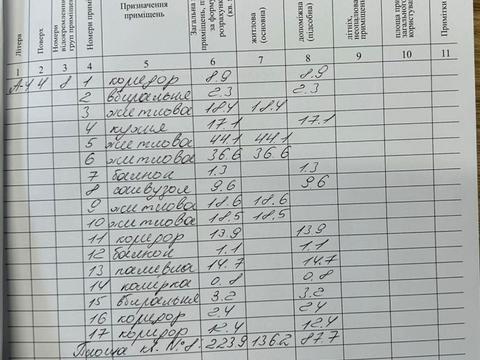 Літера
Поверх
Номери
відокремлених
груп приміщень
Номери приміщень
Призначення
приміщень
Загальна
приміщень,
за
розрахунк
(кв.
житлова
(основна)
допоміжна
(підсобна)
літніх,
неопалюваних
приміщень
площа
загального
користування
Примітки
1 2 3 4 5 6 7 8 9 10 11
А-4 4 8 1 коридор 8.9 8.9
2 вбиральня 2.3 2.3
3 житлова 18.4 18.4
4 кухня 17.1 17.1
5 житлова 44.1 44.1
6 житлова 36.6 36.6
7 балкон 1.3 1.3
8 санвузол 9.6 9.6
9 житлова 18.6 18.6
10 житлова 18.5 18.5
11 коридор 13.9 13.9
12 балкон 1.1 1.1
13 14.7 14.7
14 комірка 0.8 0.8
15 вбиральня 3.2 3.2
16 коридор 2.4 2.4
17 коридор 12.4 12.4
Площа кв. №8: 223.9 136.2 87.7